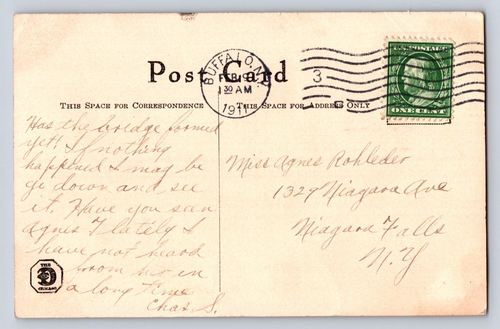 Post Card
BUFFALO, N.Y.
FEB
1 30 AM
1911
3
U.S. POSTAGE
ONE CENT
THIS SPACE FOR CORRESPONDENCE
THIS SPACE FOR ADDRESS ONLY
Has the bridge formed
yet, if nothing
happened I may be
go down and see
it. Have you seen
Agnes T lately I
have not heard
from her in
a long time
Chas. S.
Miss Agnes Rohleder
1327 Niagara Ave
Niagara Falls
N.Y